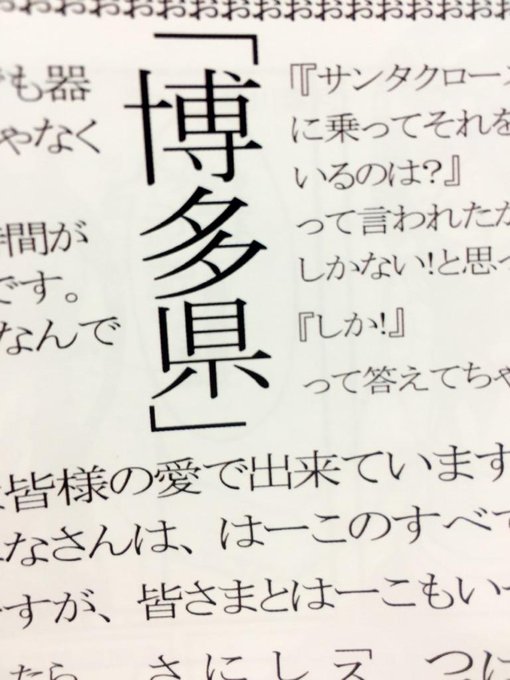 も器
ゃなく
間が
です。
なんで
「博多県」
『『サンタクロース
に乗ってそれを
いるのは?』
って言われたか
しかない!と思っ
『しか!』
って答えてちゃ
皆様の愛で出来ています
なさんは、はーこのすべて
すが、皆さまとはーこもい
たら
さにしえ「つは